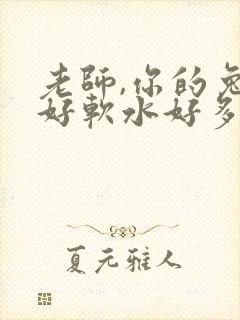 老師,你的兔
好軟水好多
夏元雅人